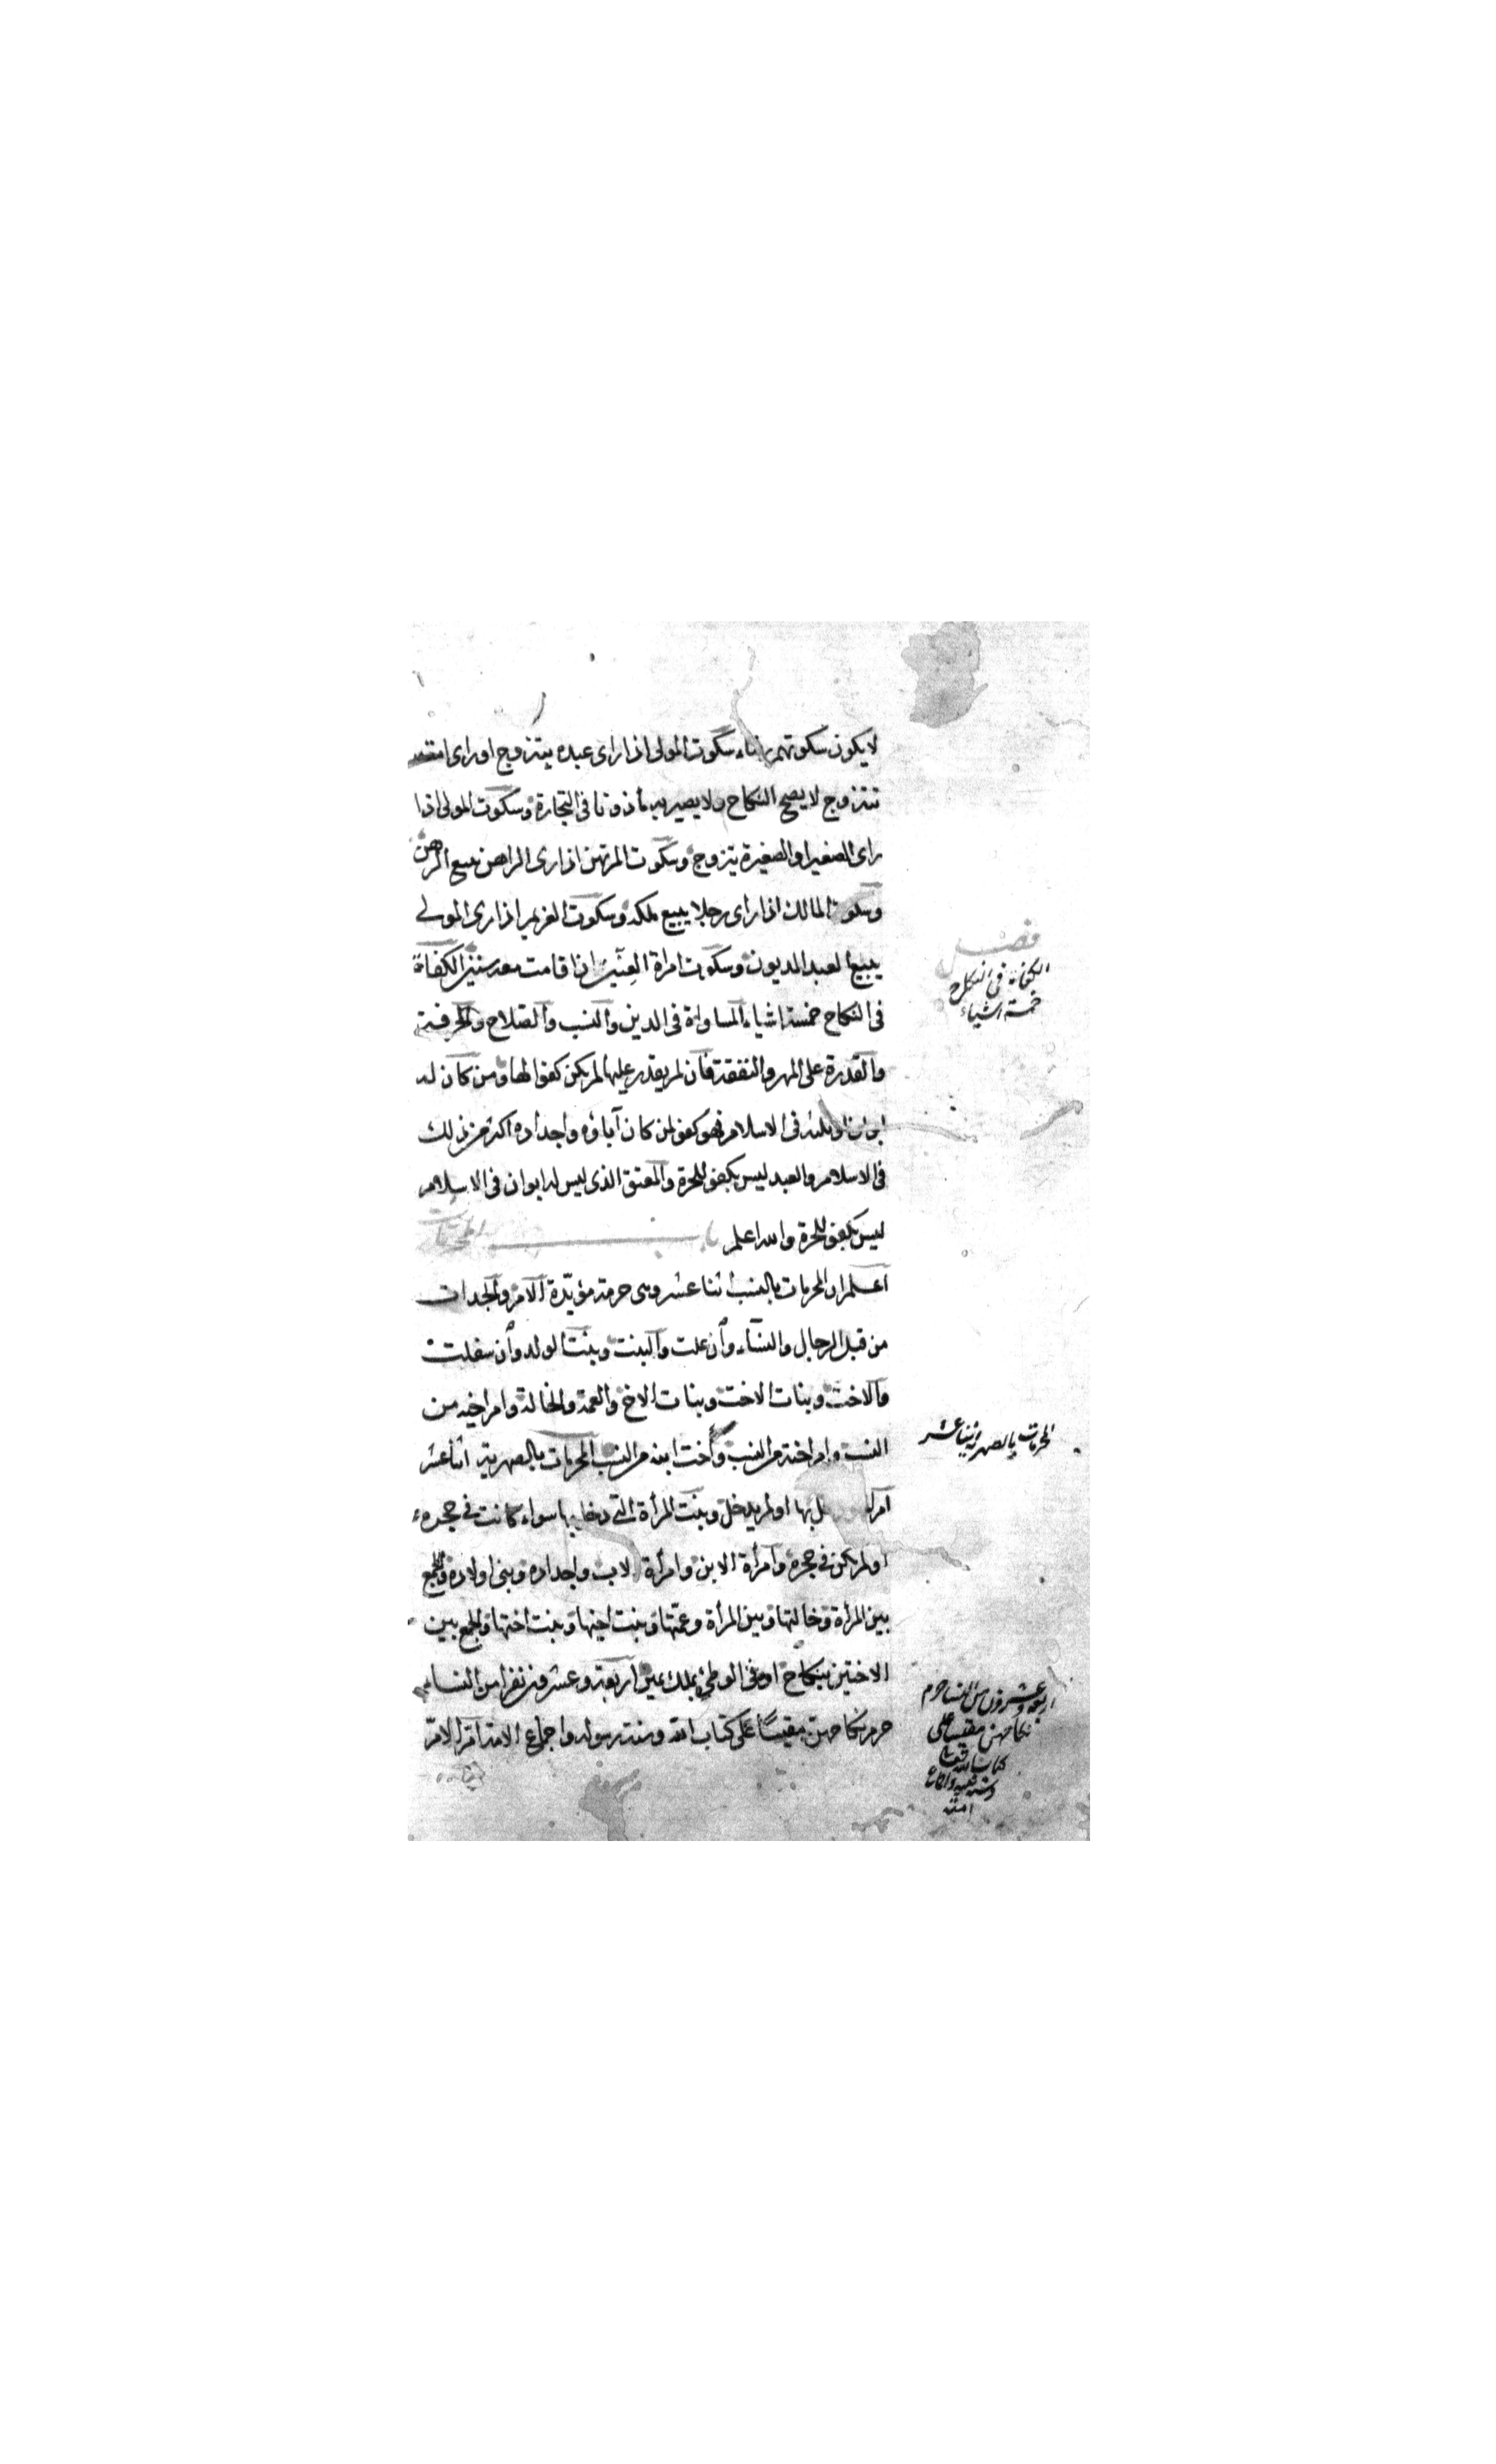 لا يكون سكوتهم رضاء سكوت المولى اذا راى عبده يتزوج او راى امته
تتزوج لا يصح النكاح ولا يصير به مأذونا فى التجارة وسكوت المولى اذا
راى الصغير او الصغيرة يتزوج وسكوت المرتهن اذا راى الراهن يبيع الرهن
وسكوت المالك اذا راى رجلا يبيع ملكه وسكوت الغريم اذا راى المولى
يبيع العبد المديون وسكوت امراة العنين اذا قامت معه سنين الكفاة
فى النكاح خمسة اشياء المساواة فى الدين والنسب والصلاح والحرفة
والقدرة على المهر والنفقة فان لم يقدر عليها لم يكن كفوا لها ومن كان له
ابوان او ثلثة فى الاسلام فهو كفو لمن كان آباؤه واجداده اكثر من ذلك
فى الاسلام والعبد ليس بكفو للحرة والمعتق الذى ليس له ابوان فى الاسلام
ليس بكفو للحرة والله اعلم باب المحرمات
اعلم ان المحرمات بالنسب اثنا عشر وهى حرمة مؤبّدة الام والجدات
من قبل الرجال والنسآء وان علت والبنت وبنت الولد وان سفلت
والاخت وبنات الاخت وبنات الاخ والعمة والخالة وام اخيه من
النسب وام اخته من النسب وأخت ابنه من النسب المحرمات بالصهرية اثنا عشر
ام امرأته دخل بها او لم يدخل وبنت المرأة التى دخل بها سواء كانت فى حجره
او لم يكن فى حجره وامرأة الابن وامرأة الاب واجداده وبنى اولاده والجمع
بين المرأة وخالتها وبين المرأة وعمّتها وبنت اخيها وبنت اختها والجمع بين
الاختين بنكاح او فى الوطئ بملك يمين اربعة وعشرون نفرا من النساء
حرم نكاحهن مقيسًا على كتاب الله وسنة رسوله واجماع الامة ام الامّ
فصل
الكفاة فى النكاح
خمسة اشياء
المحرمات بالصهرية اثنا عشر
اربعة وعشرون من النسا حرم
نكاحهن مقيسا على
كتاب الله تعالى
وسنة نبيه واجماع
امته